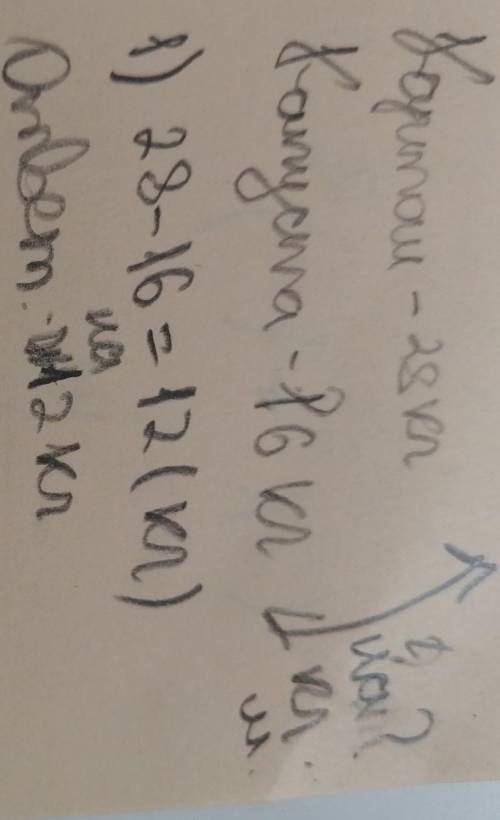 Картош - 28 кг
Капуста - 16 кг
на ? кг м.
1) 28 - 16 = 12 (кг)
Ответ: на 12 кг